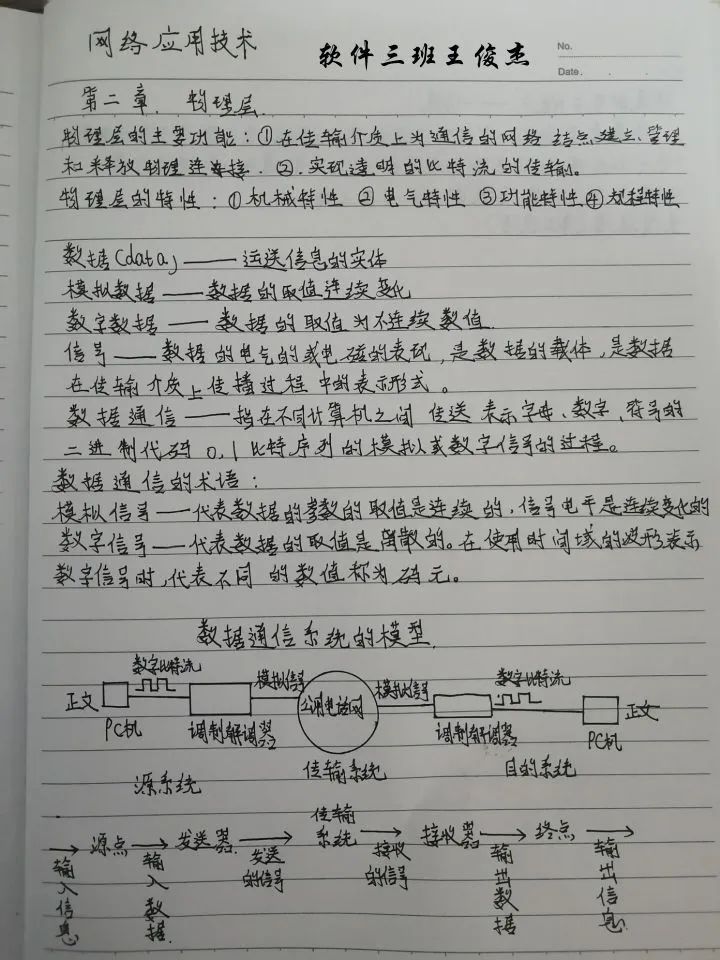 网络应用技术 软件三班王俊杰
No.
Date. . .
第二章. 物理层.
物理层的主要功能:①在传输介质上为通信的网络结点建立、管理
和释放物理连接. ②.实现透明的比特流的传输。
物理层的特性:①机械特性 ②电气特性 ③功能特性 ④规程特性
数据(data)——运送信息的实体
模拟数据——数据的取值连续变化
数字数据——数据的取值为不连续数值.
信号——数据的电气的或电磁的表现,是数据的载体,是数据
在传输介质上传播过程中的表示形式。
数据通信——指在不同计算机之间传送表示字母、数字、符号的
二进制代码0,1比特序列的模拟或数字信号的过程。
数据通信的术语:
模拟信号——代表数据的参数的取值是连续的,信号电平是连续变化的
数字信号——代表数据的取值是离散的。在使用时间域的波形表示
数字信号时,代表不同的数值称为码元。
数据通信系统的模型.
数字比特流 模拟信号 模拟信号 数字比特流
正文 公用电话网 正文
PC机 调制解调器 调制解调器 PC机
源系统 传输系统 目的系统
源点 发送器 传输系统 接收器 终点
输入信息 输入数据 发送的信号 接收的信号 输出数据 输出信息